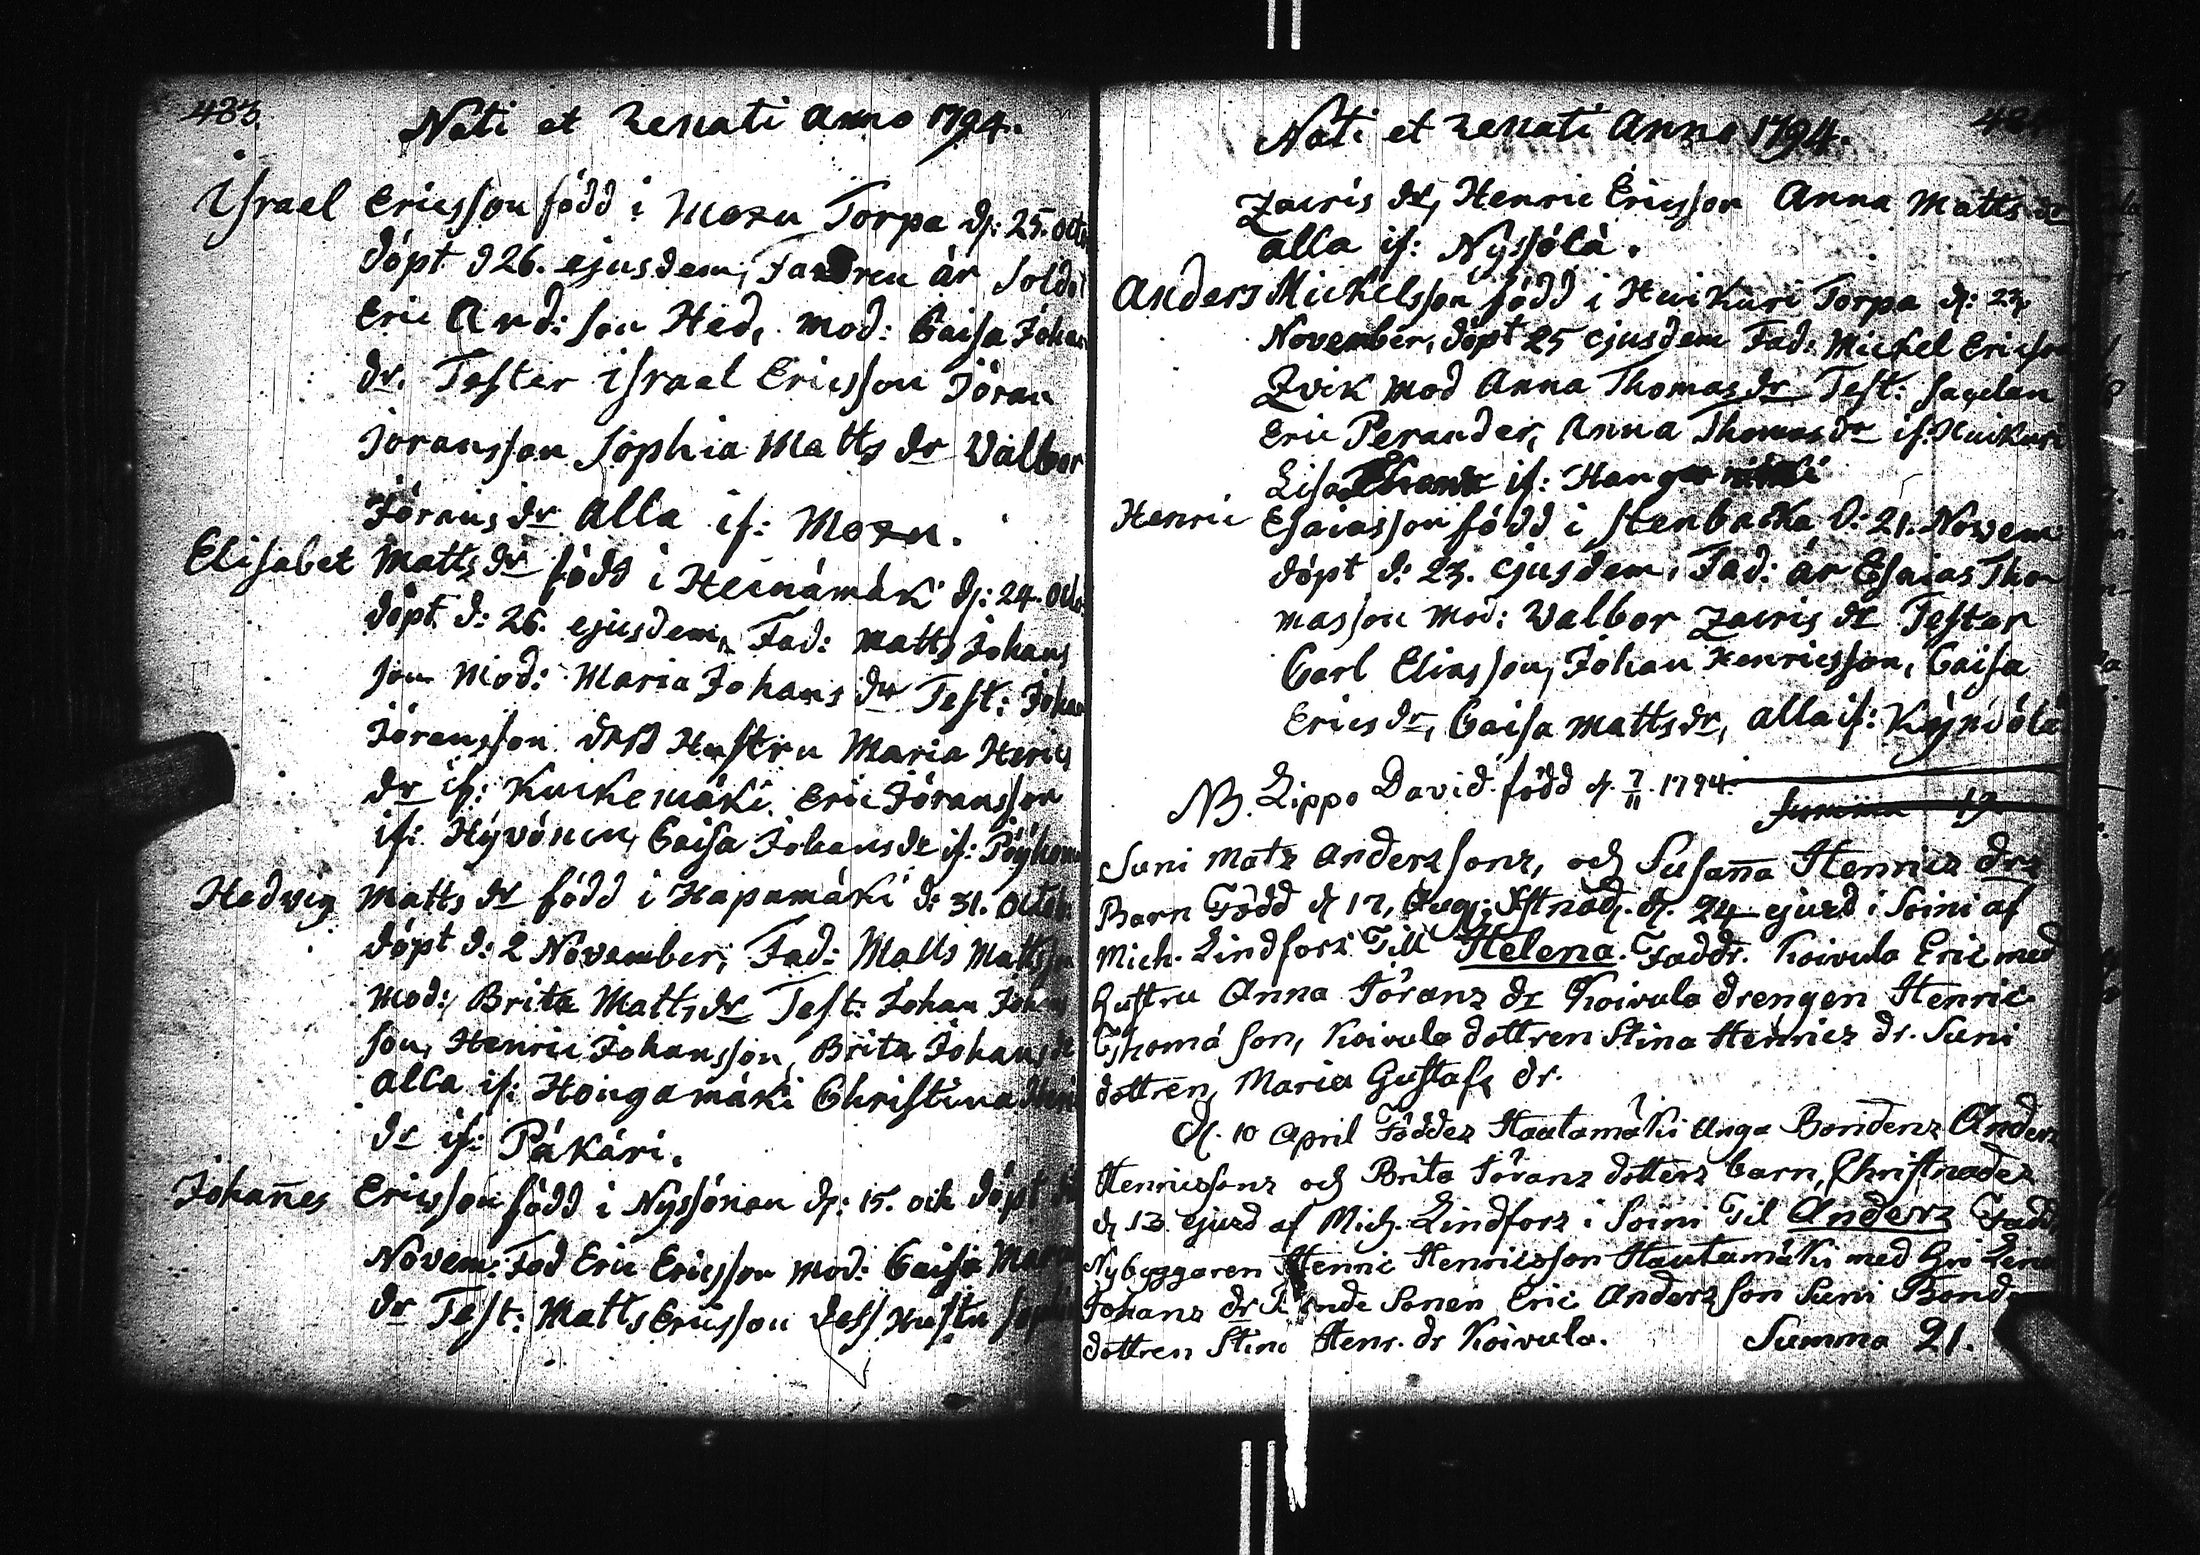 483.
Nati et renati Anno 1794.
Israel Ericsson född i Moxu Torpa d: 25. Octo
döpt d 26. ejusdem, Fadren är Solda
Eric And: son Hed, mod: Caisa Johan
dr. Tester Israel Ericsson Jöran
Joransson Sophia Matts dr Walbor
Jörans dr alla if: Moxu.
Elisabet Matts dr född i Heinämäki d: 24. Octo
döpt d: 26. ejusdem, Fad: Matts Johans
son Mod: Maria Johans dr Test: Johan
Jöransson dess Hustru Maria Henrics
dr if: Kuckemäki, Eric Jöransson
if: Hyvönen, Caisa Johans dr if: Pöyhönen
Hedwig Matts dr född i Hapamäki d: 31. Octob
döpt d: 2 November, Fad: Matts Mattsson
mod: Brita Matts dr Test: Johan Johans
son, Henric Johansson, Brita Johans dr
alla if: Hongamäki Christina Henr
dr if: Päkäri.
Johannes Ericsson född i Nyssönen d: 15. och döpt
Novem: Fad Eric Ericsson mod: Caisa
dr Test: Matts Ericsson dess Hustru Sophia
Nati et renati Anno 1794.
Zacris dr, Henric Ericsson Anna Matts dr
alla if: Nyssölä.
Anders Mickelsson född i Huikuri Torpa d: 23
November, döpt 25 ejusdem Fad: Michel Ericsson
Zvik mod Anna Thomas dr Test:
Eric Perander, Anna Thomas dr if: Huikuri
Lisa if:
Henric Esaiasson född i Stenbacka d: 21. Novem
döpt d: 23. ejusdem, Fad: är Esaias Tho
masson mod: Walbor Zacris dr Tester
Carl Eliasson, Johan Henricsson, Caisa
Erics dr, Caisa Matts dr, alla if: Kynvölä
NB. Lippo David född d. 7/11 1794.
Summa 19
Suni Matz Anderssons, och Susanna Henrics drs
Barn Född d 17, Aug: Xstnad. d. 24 ejusd i Soini af
Mich. Lindfors Till Helena. Faddr. Koivula Eric med
hustru Anna Jörans dr Koivula drengen Henric
Thomä son, Koivula dottren Stina Henrics dr. Suni
dottren Maria Gustafs dr.
d. 10 April Föddes Hautamäki unga Bondens Anders
Henricssons och Brita Jörans dotters barn, Christnades
d 13 ejusd af Mich. Lindfors i Soini Til Anders Fadd
Nybyggaren Henric Henricsson Hautamäki med
Johans dr Sonen Eric Anders son Suni Bond
dottren Stina Henr. dr Koivula. Summa 21.